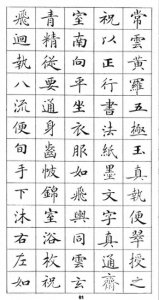 常雲黃羅五極玉真執便授之
祝以正行書法紙墨文字真通齋
室南向平坐衣服如飛輿同雲玄
青精從要通身齒帔錦室浴祝
飛迴執八流便旬手下沐右左如
81